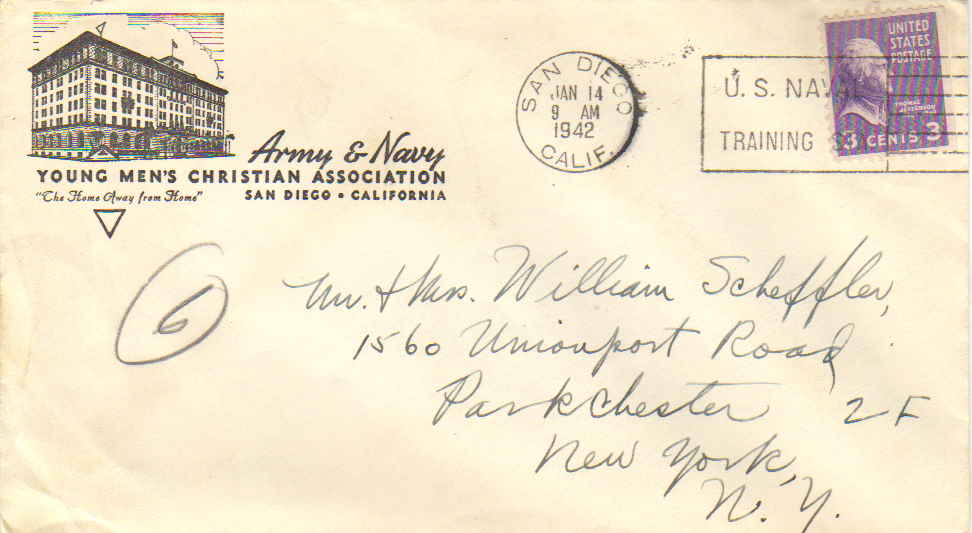 Army & Navy
YOUNG MEN'S CHRISTIAN ASSOCIATION
"The Home Away from Home" SAN DIEGO • CALIFORNIA
SAN DIEGO
JAN 14
9 AM
1942
CALIF.
U.S. NAVAL
TRAINING
UNITED
STATES
POSTAGE
THOMAS
JEFFERSON
3 CENTS 3
6
Mr. & Mrs. William Scheffler,
1560 Unionport Road
Parkchester 2F
New York,
N.Y.